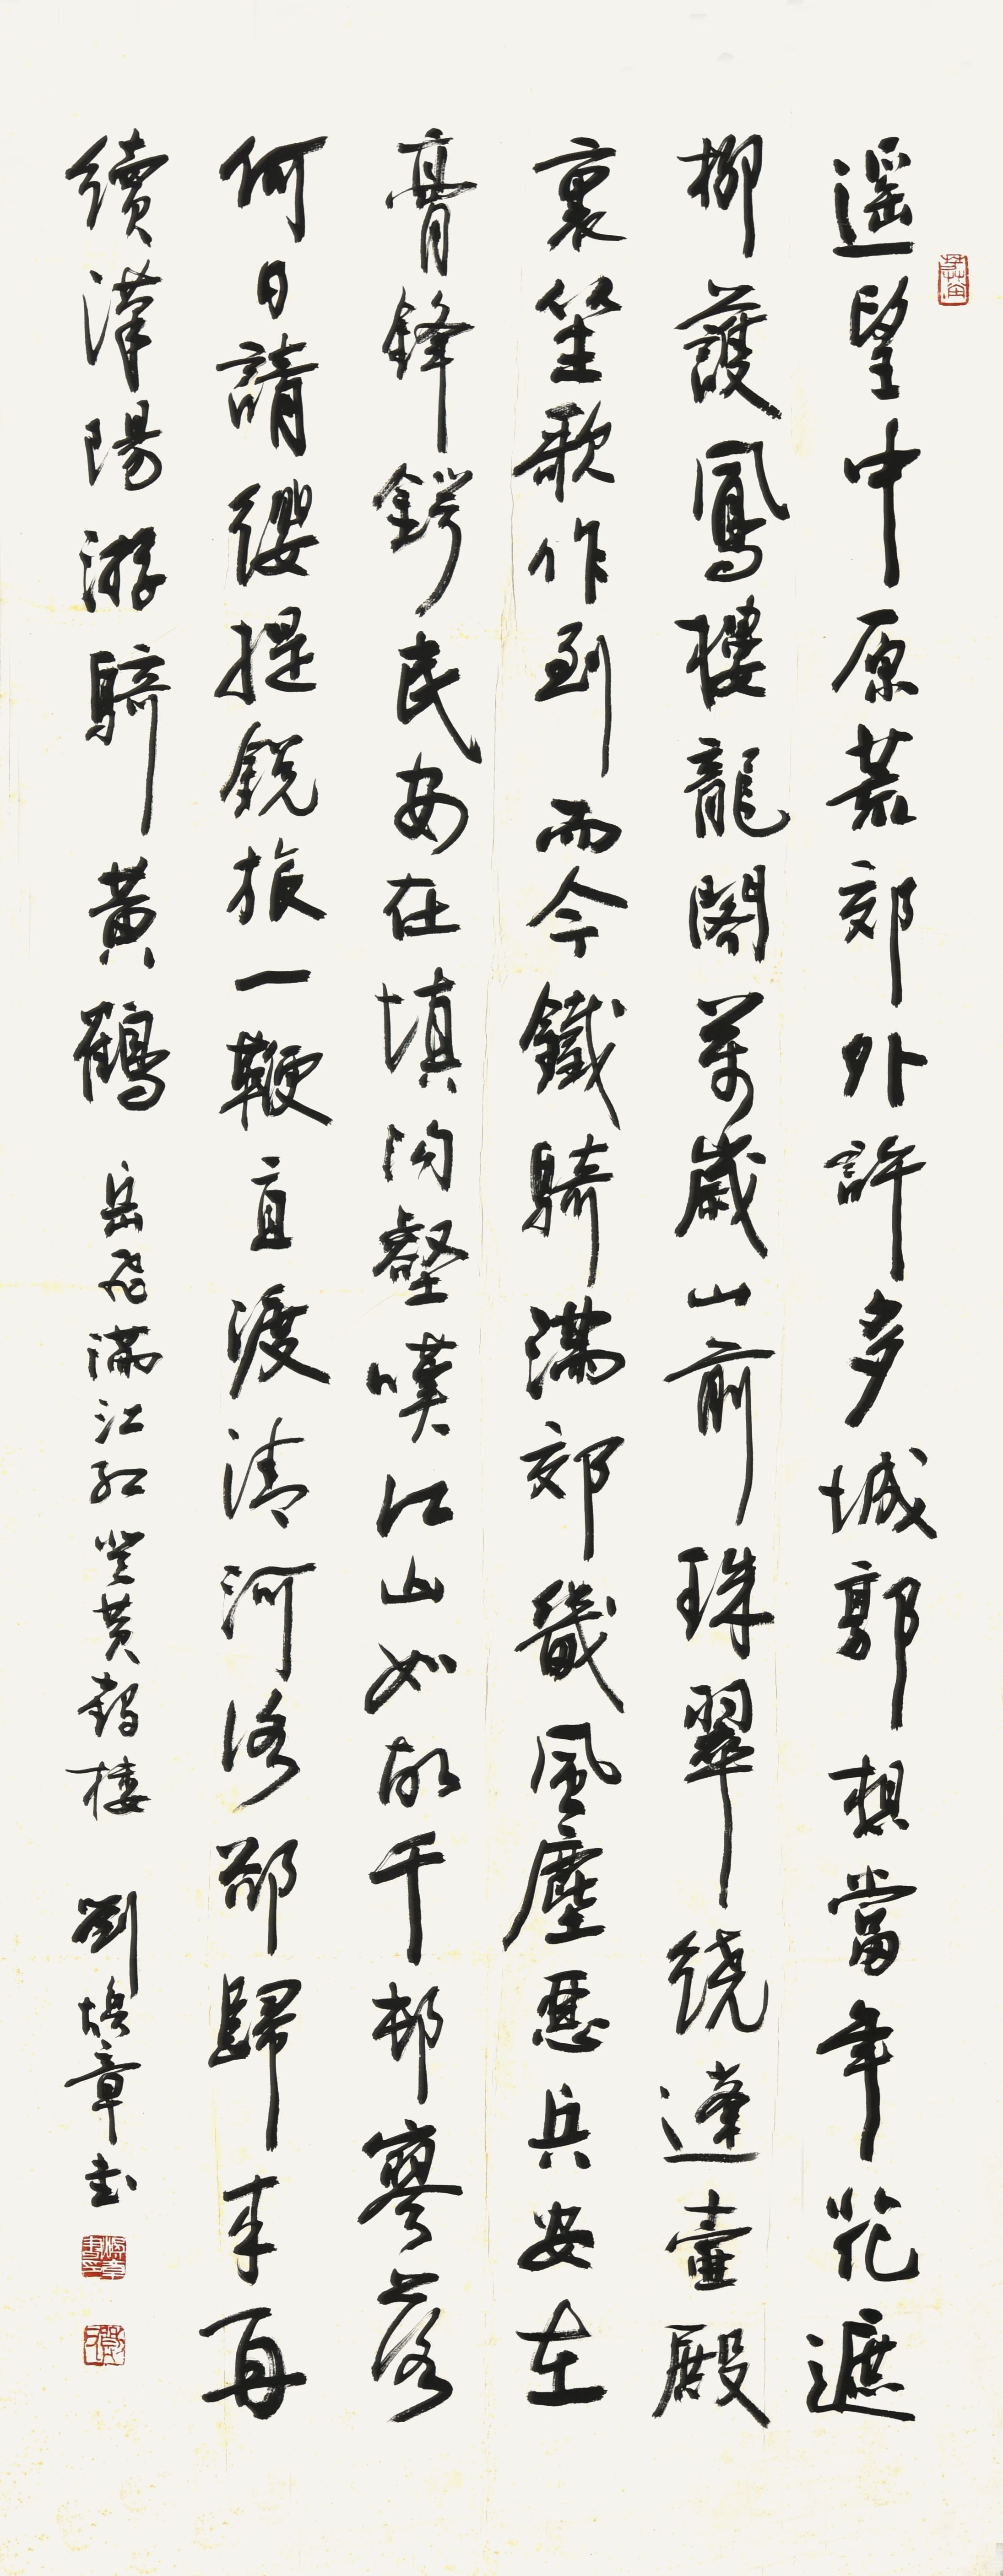 遙望中原荒郊外許多城郭想當年花遮
柳護鳳樓龍閣萬歲山前珠翠繞蓬壺殿
裏笙歌作到而今鐵騎滿郊畿風塵惡兵安在
膏鋒鍔民安在填沟壑嘆江山如故千邨寥落
何日請纓提銳旅一鞭直渡清河洛卻歸來再
續漢陽游騎黃鶴 岳飛滿江紅登黃鶴樓 劉煥章書